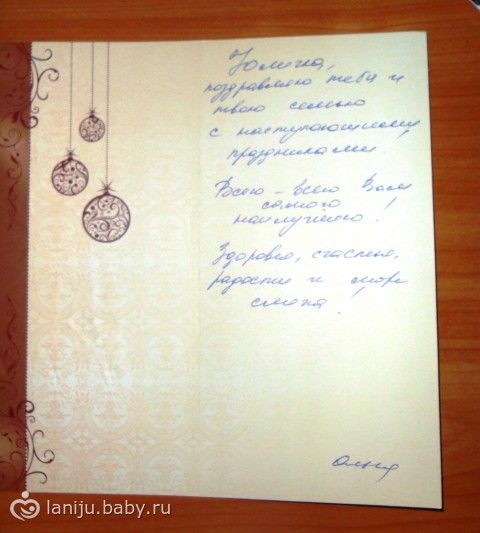 Юлечка,
поздравляю тебя и
твою семью
с наступающими
праздниками!
Всего-всего Вам
самого
наилучшего!
Здоровья, счастья,
радости и море
смеха!
Ольга
laniju.baby.ru